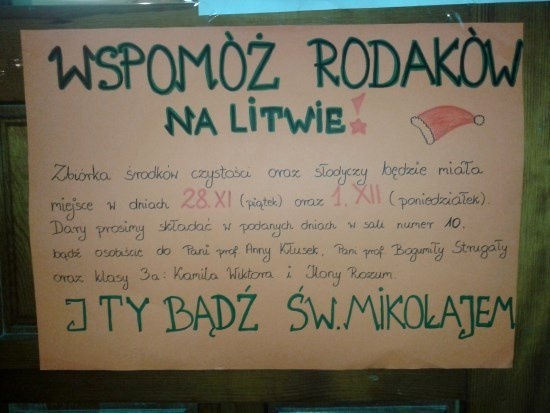 WSPOMÓŻ RODAKÓW
NA LITWIE!
Zbiórka środków czystości oraz słodyczy będzie miała
miejsce w dniach 28.XI (piątek) oraz 1.XII (poniedziałek).
Dary prosimy składać w podanych dniach w sali numer 10,
bądź osobiście do Pani prof. Anny Kłusek, Pani prof. Bogumiły Strugały
oraz klasy 3a: Kamila Wiktora i Ilony Rozum.
I TY BĄDŹ ŚW. MIKOŁAJEM